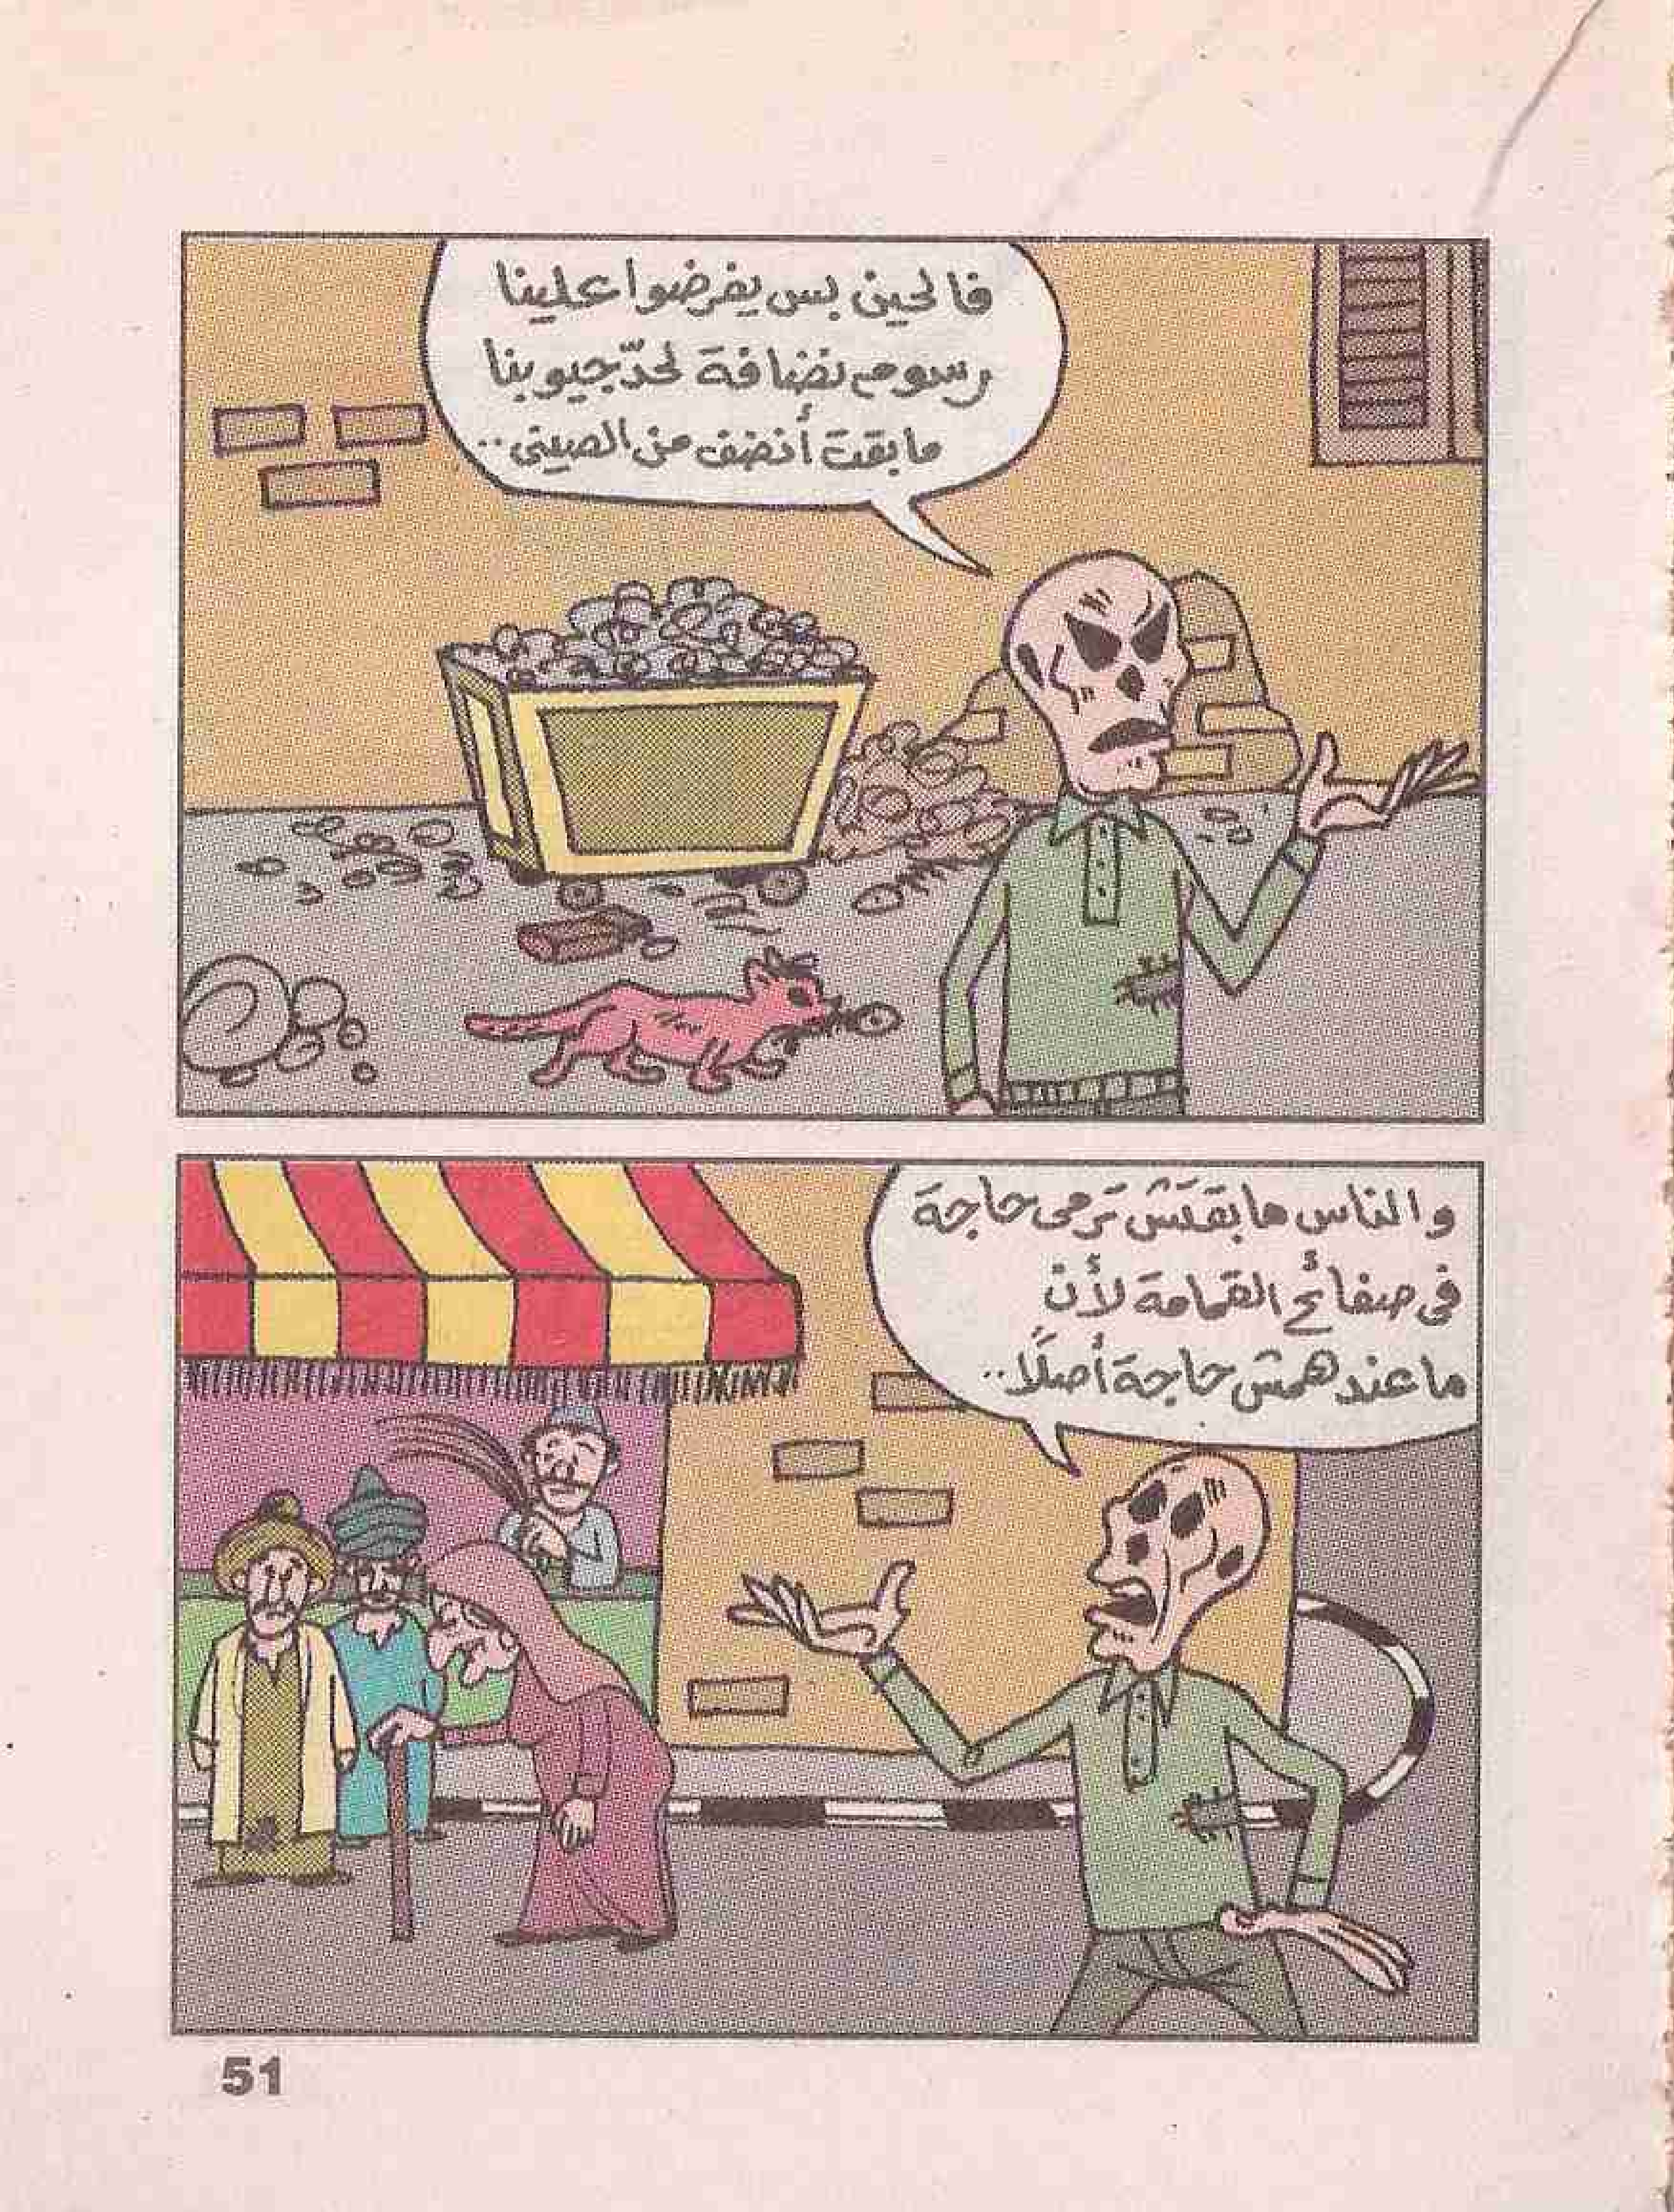 فالحين بس يفرضوا علينا
رسوم نضافة لحدّ جيوبنا
ما بقت أنضف من الصينى..
والناس ما بقَتش تَرمى حاجة
فى صفائح القمامة لأن
ما عندهمش حاجة أصلًا..
51